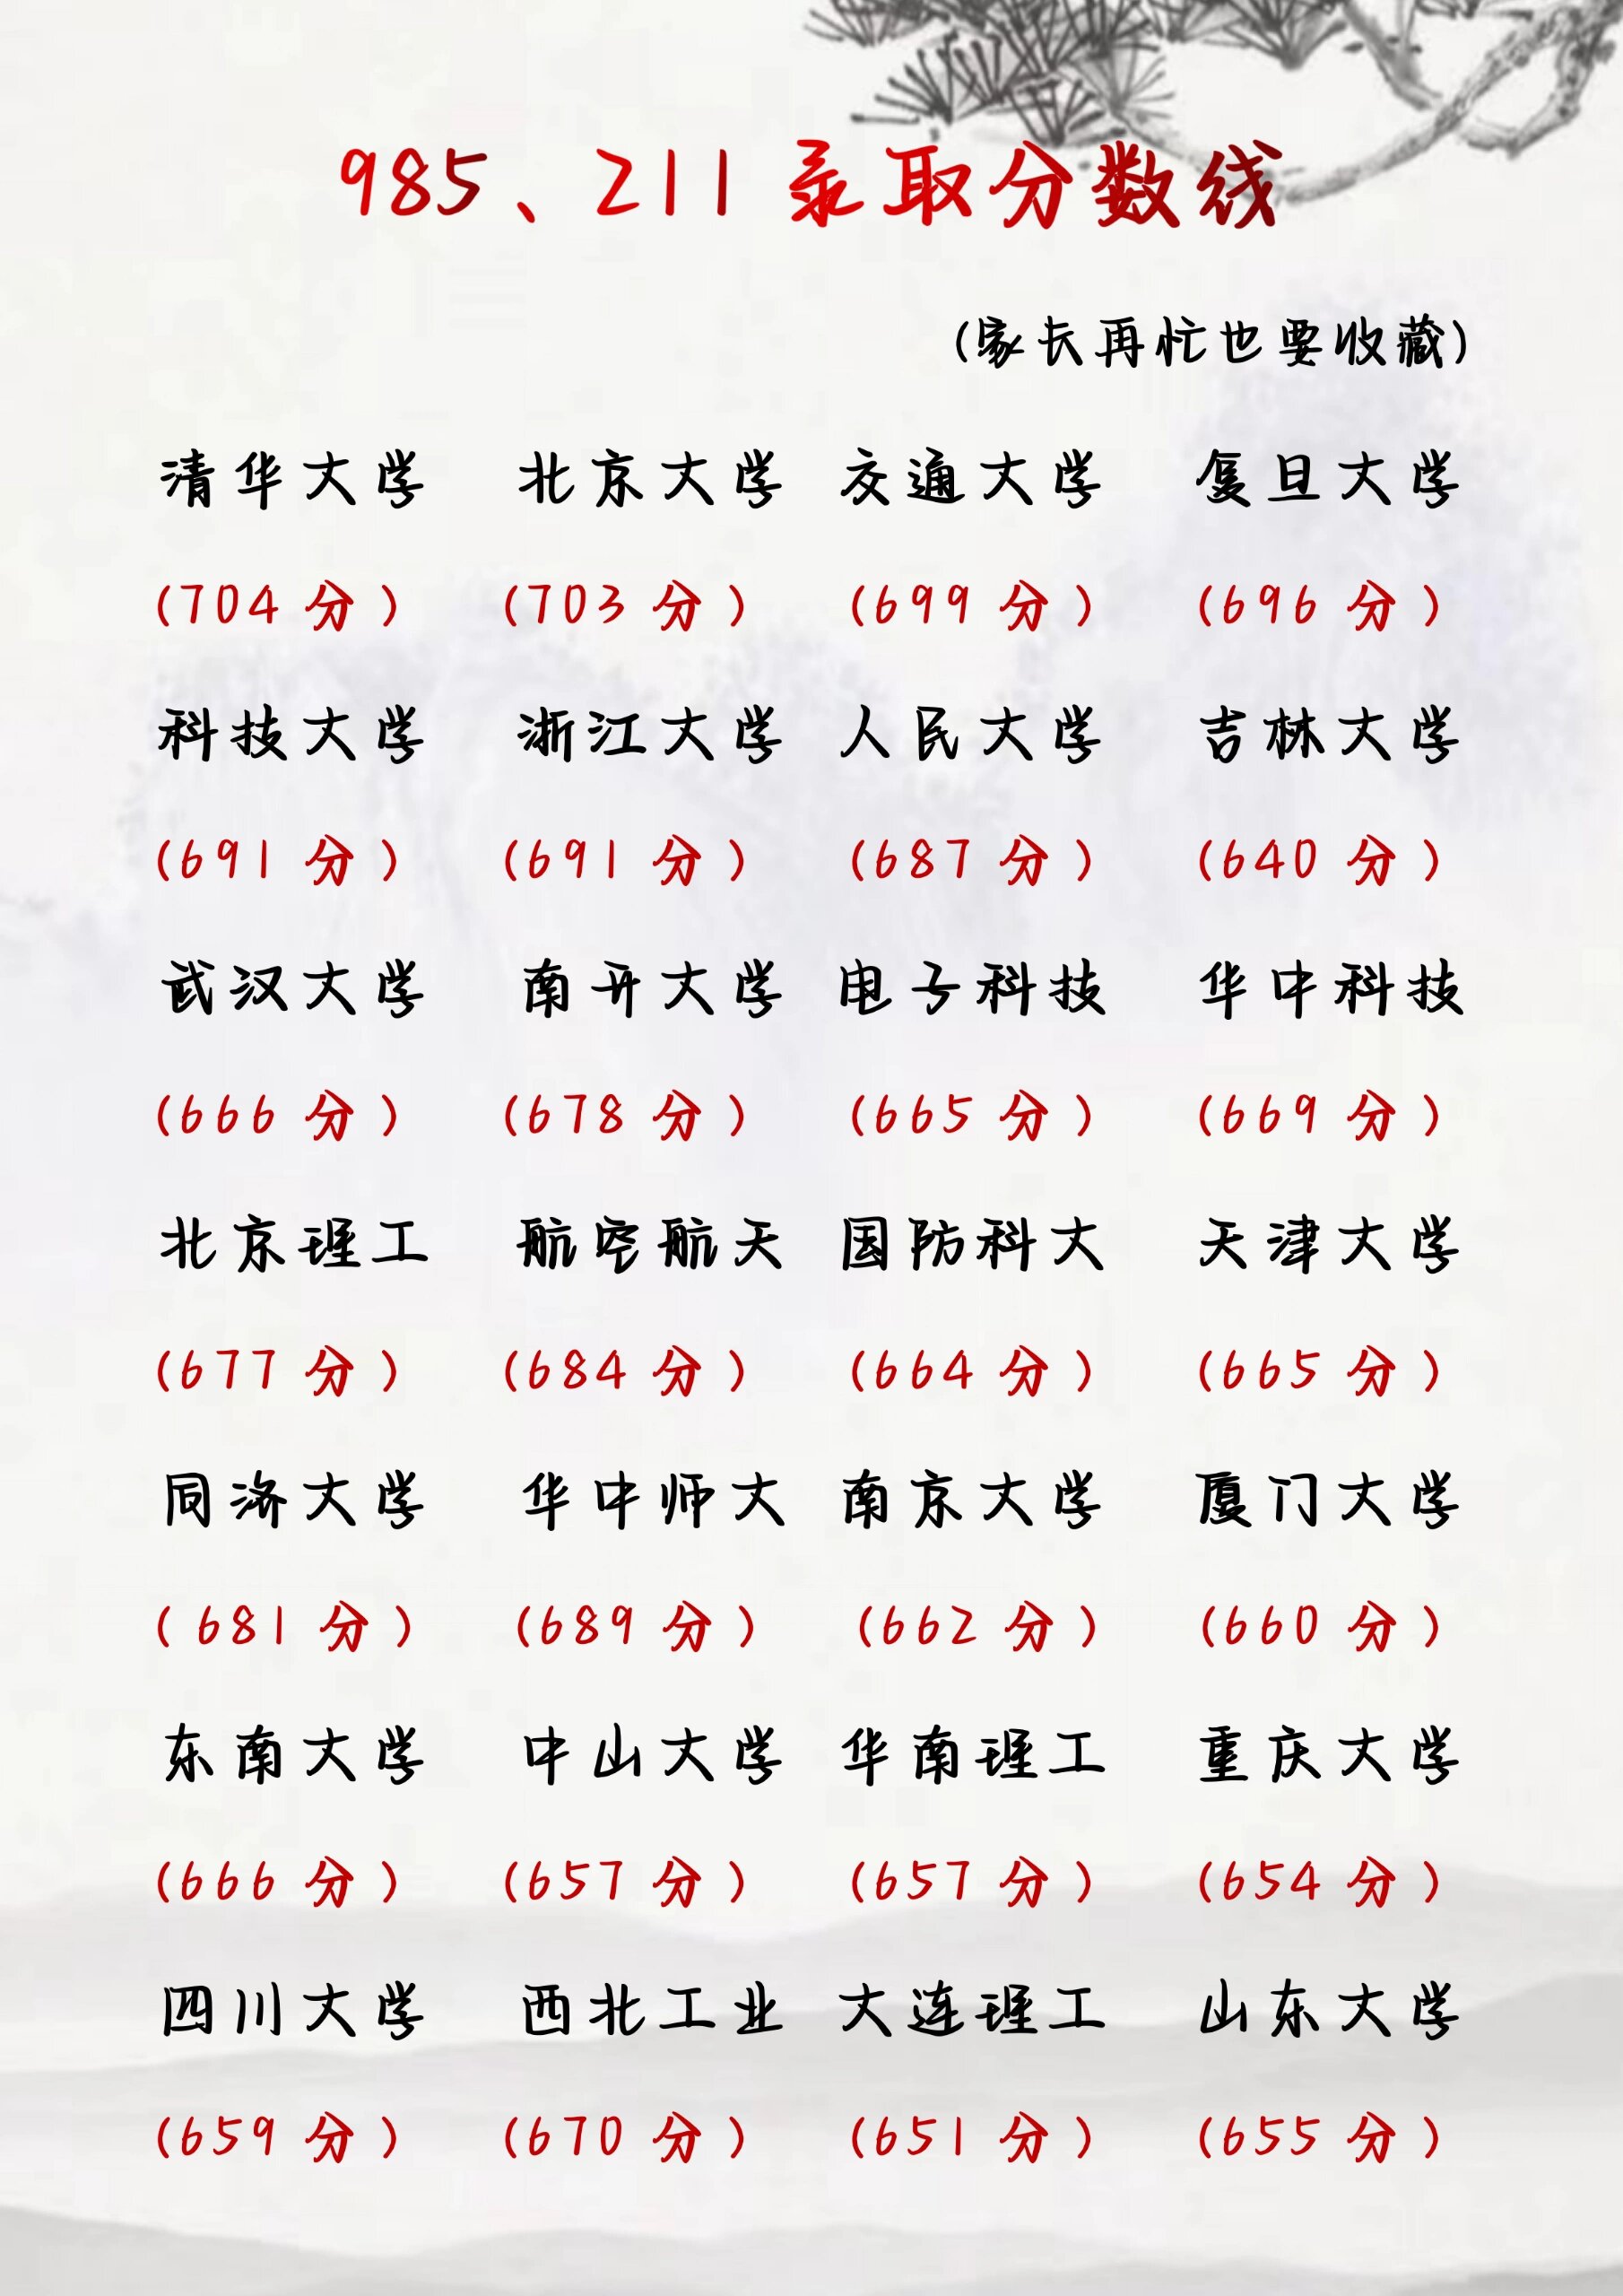 985、211 录取分数线
(家长再忙也要收藏)
清华大学 北京大学 交通大学 复旦大学
(704 分) (703 分) (699 分) (696 分)
科技大学 浙江大学 人民大学 吉林大学
(691 分) (691 分) (687 分) (640 分)
武汉大学 南开大学 电子科技 华中科技
(666 分) (678 分) (665 分) (669 分)
北京理工 航空航天 国防科大 天津大学
(677 分) (684 分) (664 分) (665 分)
同济大学 华中师大 南京大学 厦门大学
(681 分) (689 分) (662 分) (660 分)
东南大学 中山大学 华南理工 重庆大学
(666 分) (657 分) (657 分) (654 分)
四川大学 西北工业 大连理工 山东大学
(659 分) (670 分) (651 分) (655 分)